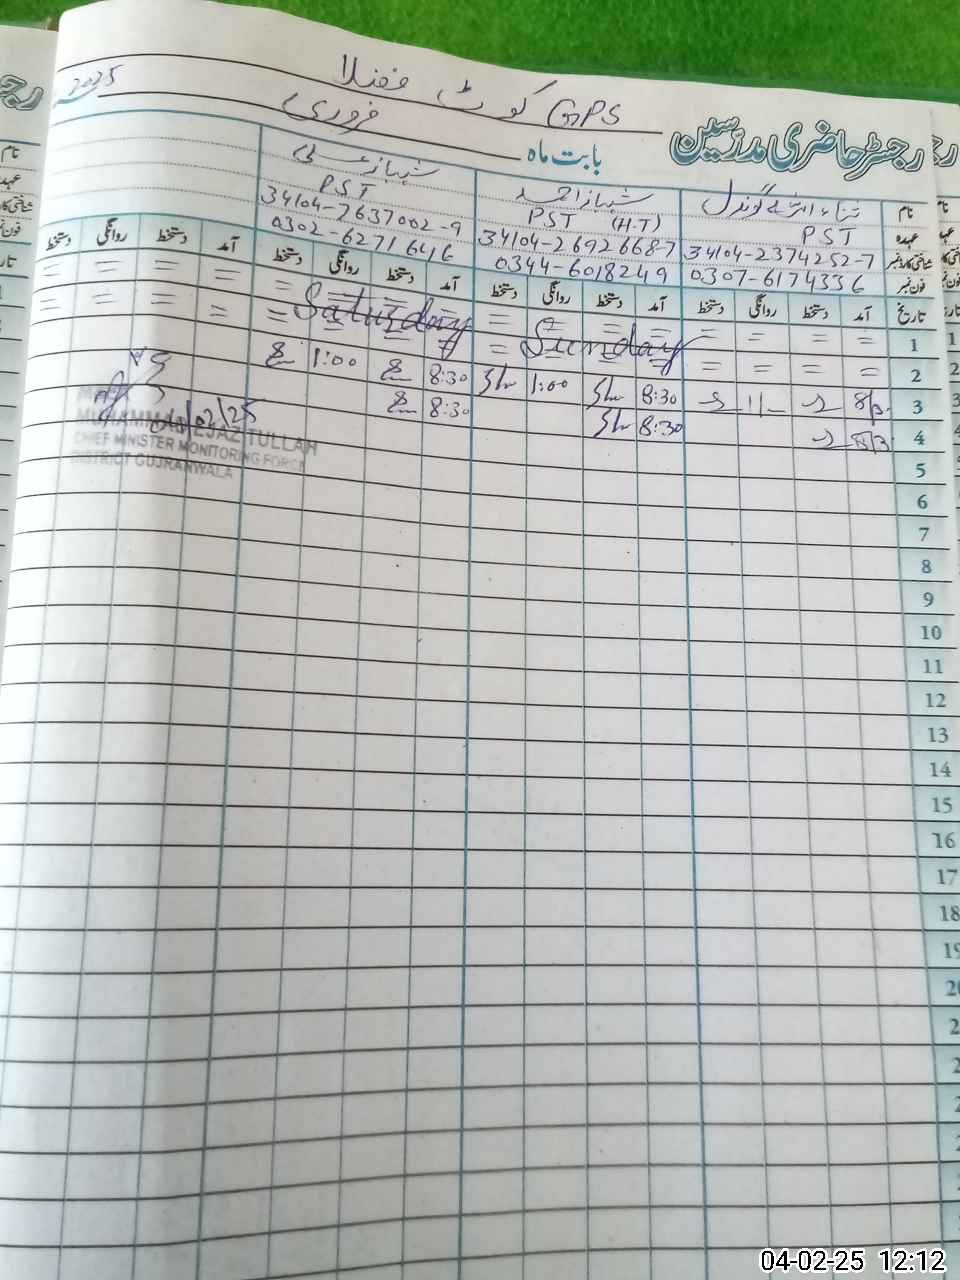 رجسٹر حاضری مدرسین
GPS کوٹ فضلا
بابت ماہ فروری 2025
نام شہباز احمد شہباز علی
عہدہ PST PST (H.T) PST
شناختی کارڈ نمبر 34104-2374252-7 34104-2692668-7 34104-7637002-9
فون نمبر 0307-6174336 0344-6018249 0302-6271646
تاریخ آمد دستخط روانگی دستخط آمد دستخط روانگی دستخط آمد دستخط روانگی دستخط آمد دستخط روانگی دستخط
1 = = = = = = = Saturday = = = = =
2 = = = = Sunday = = = = =
3 8:30 1:00 8:30 1:00
4 8:30 8:30
5
6
7
8
9
10
11
12
13
14
15
16
17
18
MUHAMMAD EJAZ TULLAH
CHIEF MINISTER MONITORING FORCE
DISTRICT GUJRANWALA
04-02-25 12:12